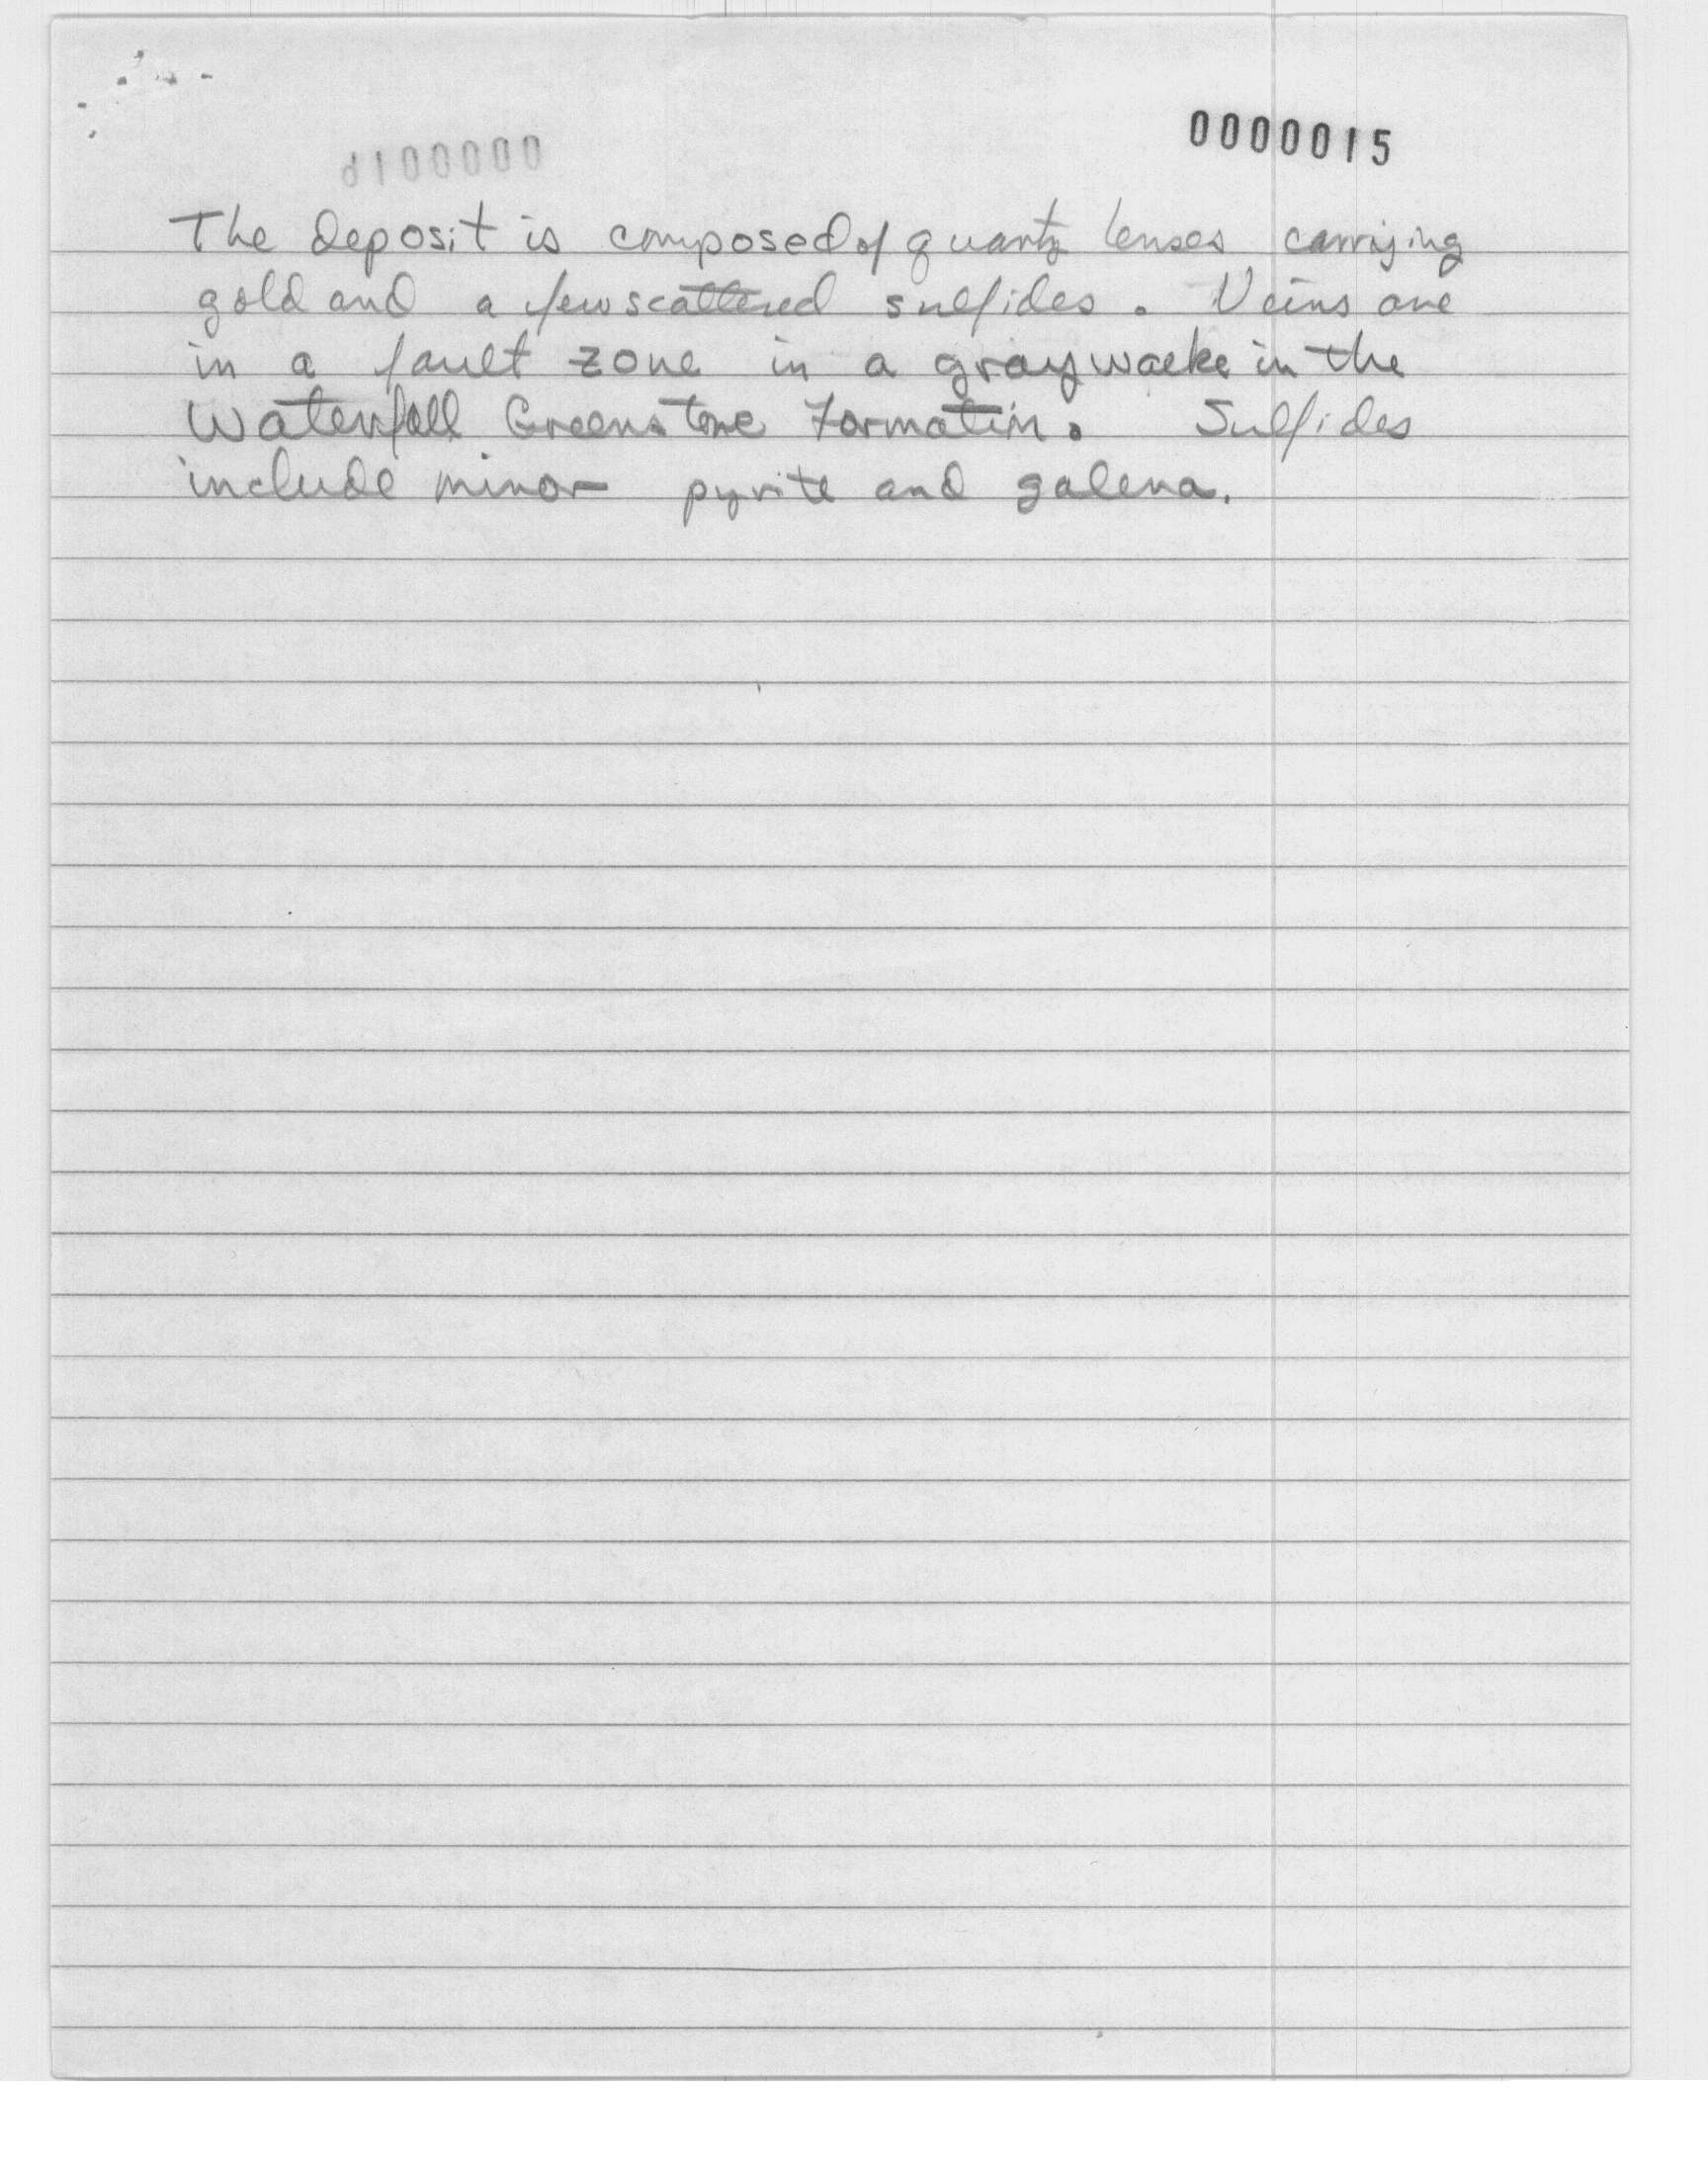 0000015
The deposit is composed of quartz lenses carrying
gold and a few scattered sulfides. Veins are
in a fault zone in a graywacke in the
Waterfall Greenstone Formation. Sulfides
include minor pyrite and galena.